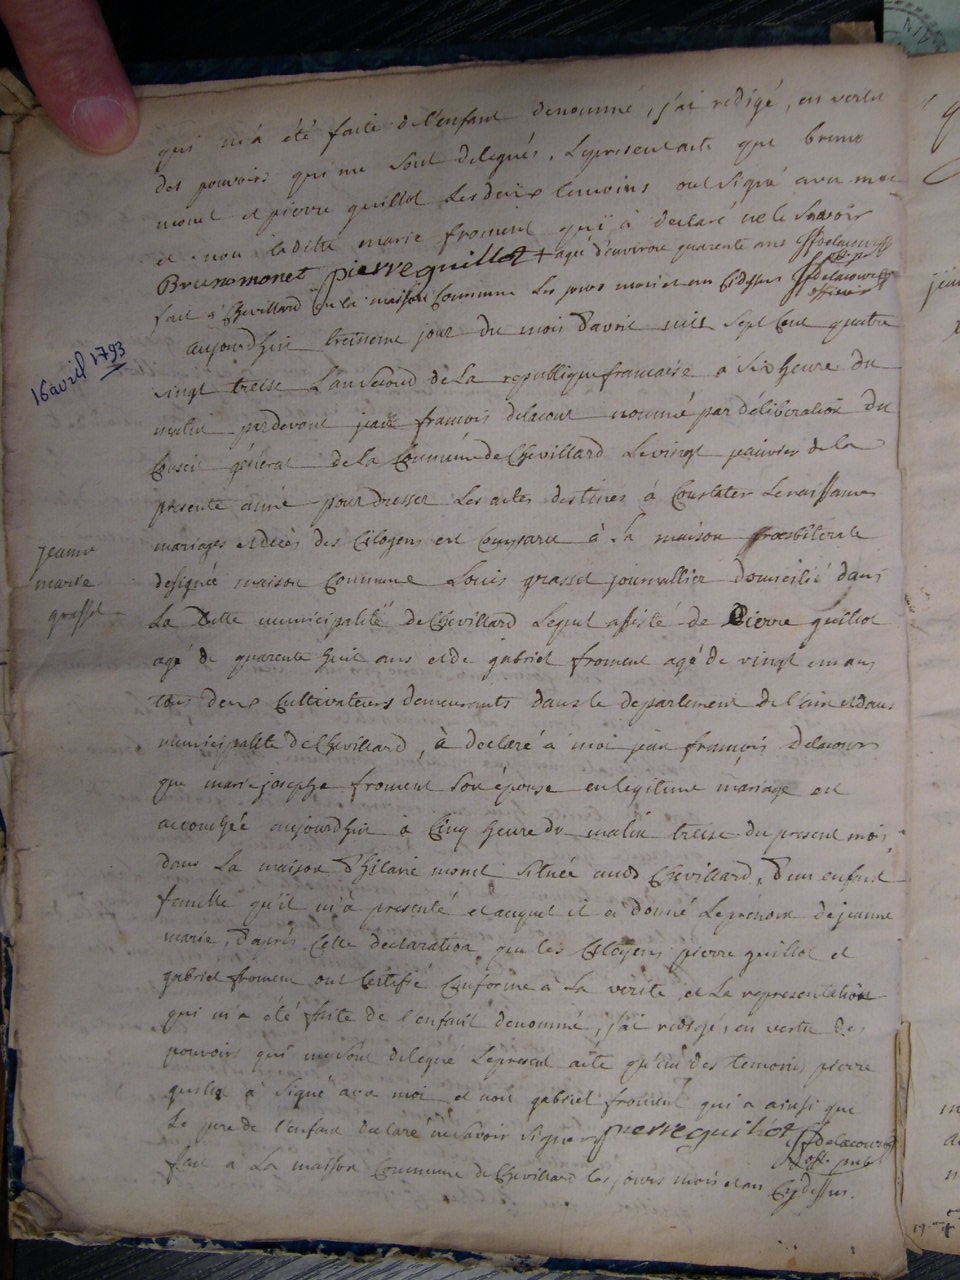 qui m'a été faite de l'enfant denommé, j'ai redigé, en vertu
des pouvoirs qui me sont delegués, Le present acte que bruno
monet et pierre guillot Les deux temoins ont signé avec moi
et non ladite marie froment qui à declaré ne le Savoir
Bruno monet pierre guillot + agé d'environ quarente ans JfDelacour off. p.
fait à Chevillard en la maison Commune Les jours mois et an Cidessus JfDelacour officier
aujourdhui treisieme jour du mois d'avril mil Sept Cent quatre
16 avril 1793
vingt treise L'an Second de La republique francaise à Six heure du
matin pardevant jean francois delacour nommé par déliberation du
Conseil général de La Commune de Chevillard Le vingt janvier de la
presente année pour dresser Les actes destinés à Constater Les naissances
mariages et decès des Citoyens est Comparu à La maison presbiterale
jeanne
marie
grasset
designée maison Commune Louis grasset journallier domicilié dans
La ditte municipalité de Chevillard Lequel assisté de Pierre guillot
agé de quarente huit ans et de gabriel froment agé de vingt un ans
tous deux Cultivateurs demeurants dans le departement de l'ain et dans
municipalité de Chevillard, à declaré à moi jean francois delacour
que marie josephe froment son épouse en legitime mariage est
accouchée aujourdhui à Cinq heure du matin treise du present mois,
dans La maison d'hilaire monet Située audt Chevillard, d'un enfant
femelle qu'il m'à presenté et auquel il a donné Le prénom de jeanne
marie, d'après Cette declaration que les Citoyens pierre guillot et
gabriel froment ont Certifié Conforme à La verité, et La representation
qui m'a été faite de l'enfant denommé, j'ai redigé, en vertu des
pouvoirs qui me sont delegué Le present acte qu'un des temoins pierre
guillot à Signé avec moi et non gabriel froment qui a ainsi que
Le pere de l'enfant declaré ne savoir signer pierre guillot JfDelacour off. pub
fait à La maison Commune de Chevillard les jours mois et an Cydessus.